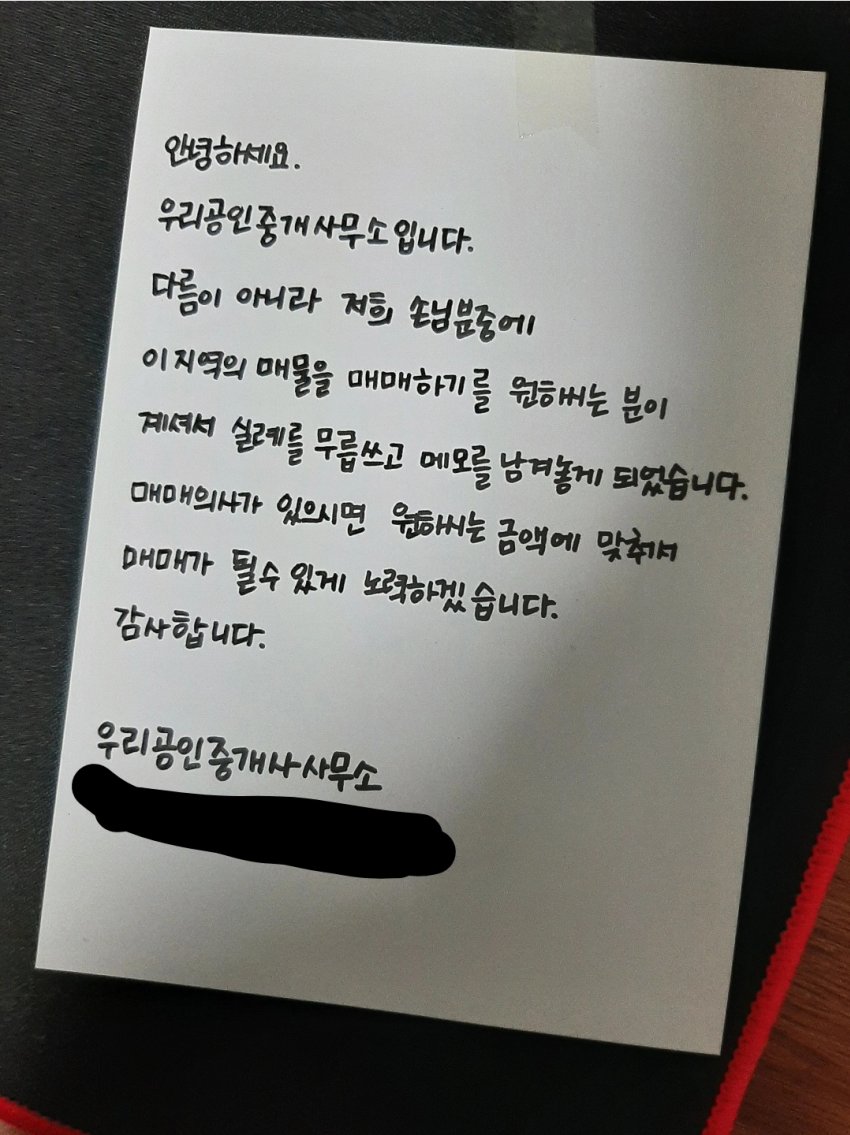 안녕하세요.
우리공인중개사무소입니다.
다름이 아니라 저희 손님분중에
이지역의 매물을 매매하기를 원하시는 분이
계셔서 실례를 무릅쓰고 메모를 남겨놓게 되었습니다.
매매의사가 있으시면 원하시는 금액에 맞춰서
매매가 될수있게 노력하겠습니다.
감사합니다.
우리공인중개사사무소